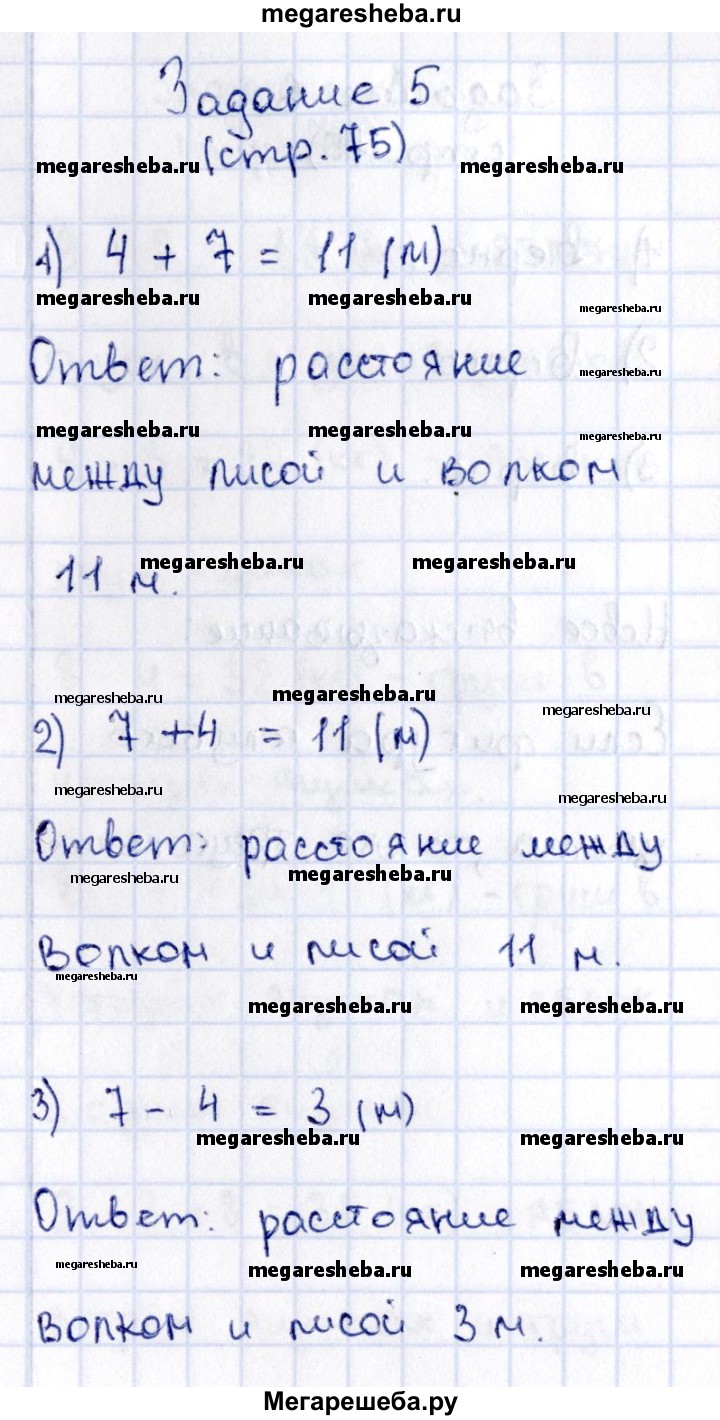 megaresheba.ru
Задание 5
(стр. 75)
megaresheba.ru megaresheba.ru
1) 4 + 7 = 11 (м)
megaresheba.ru megaresheba.ru megaresheba.ru
Ответ: расстояние
megaresheba.ru
megaresheba.ru megaresheba.ru megaresheba.ru
между лисой и волком
11 м.
megaresheba.ru megaresheba.ru
megaresheba.ru megaresheba.ru megaresheba.ru
2) 7 + 4 = 11 (м)
megaresheba.ru megaresheba.ru
Ответ: расстояние между
megaresheba.ru megaresheba.ru
волком и лисой 11 м.
megaresheba.ru
megaresheba.ru megaresheba.ru
3) 7 - 4 = 3 (м)
megaresheba.ru megaresheba.ru
Ответ: расстояние между
megaresheba.ru megaresheba.ru megaresheba.ru
волком и лисой 3 м.
Мегарешеба.ру